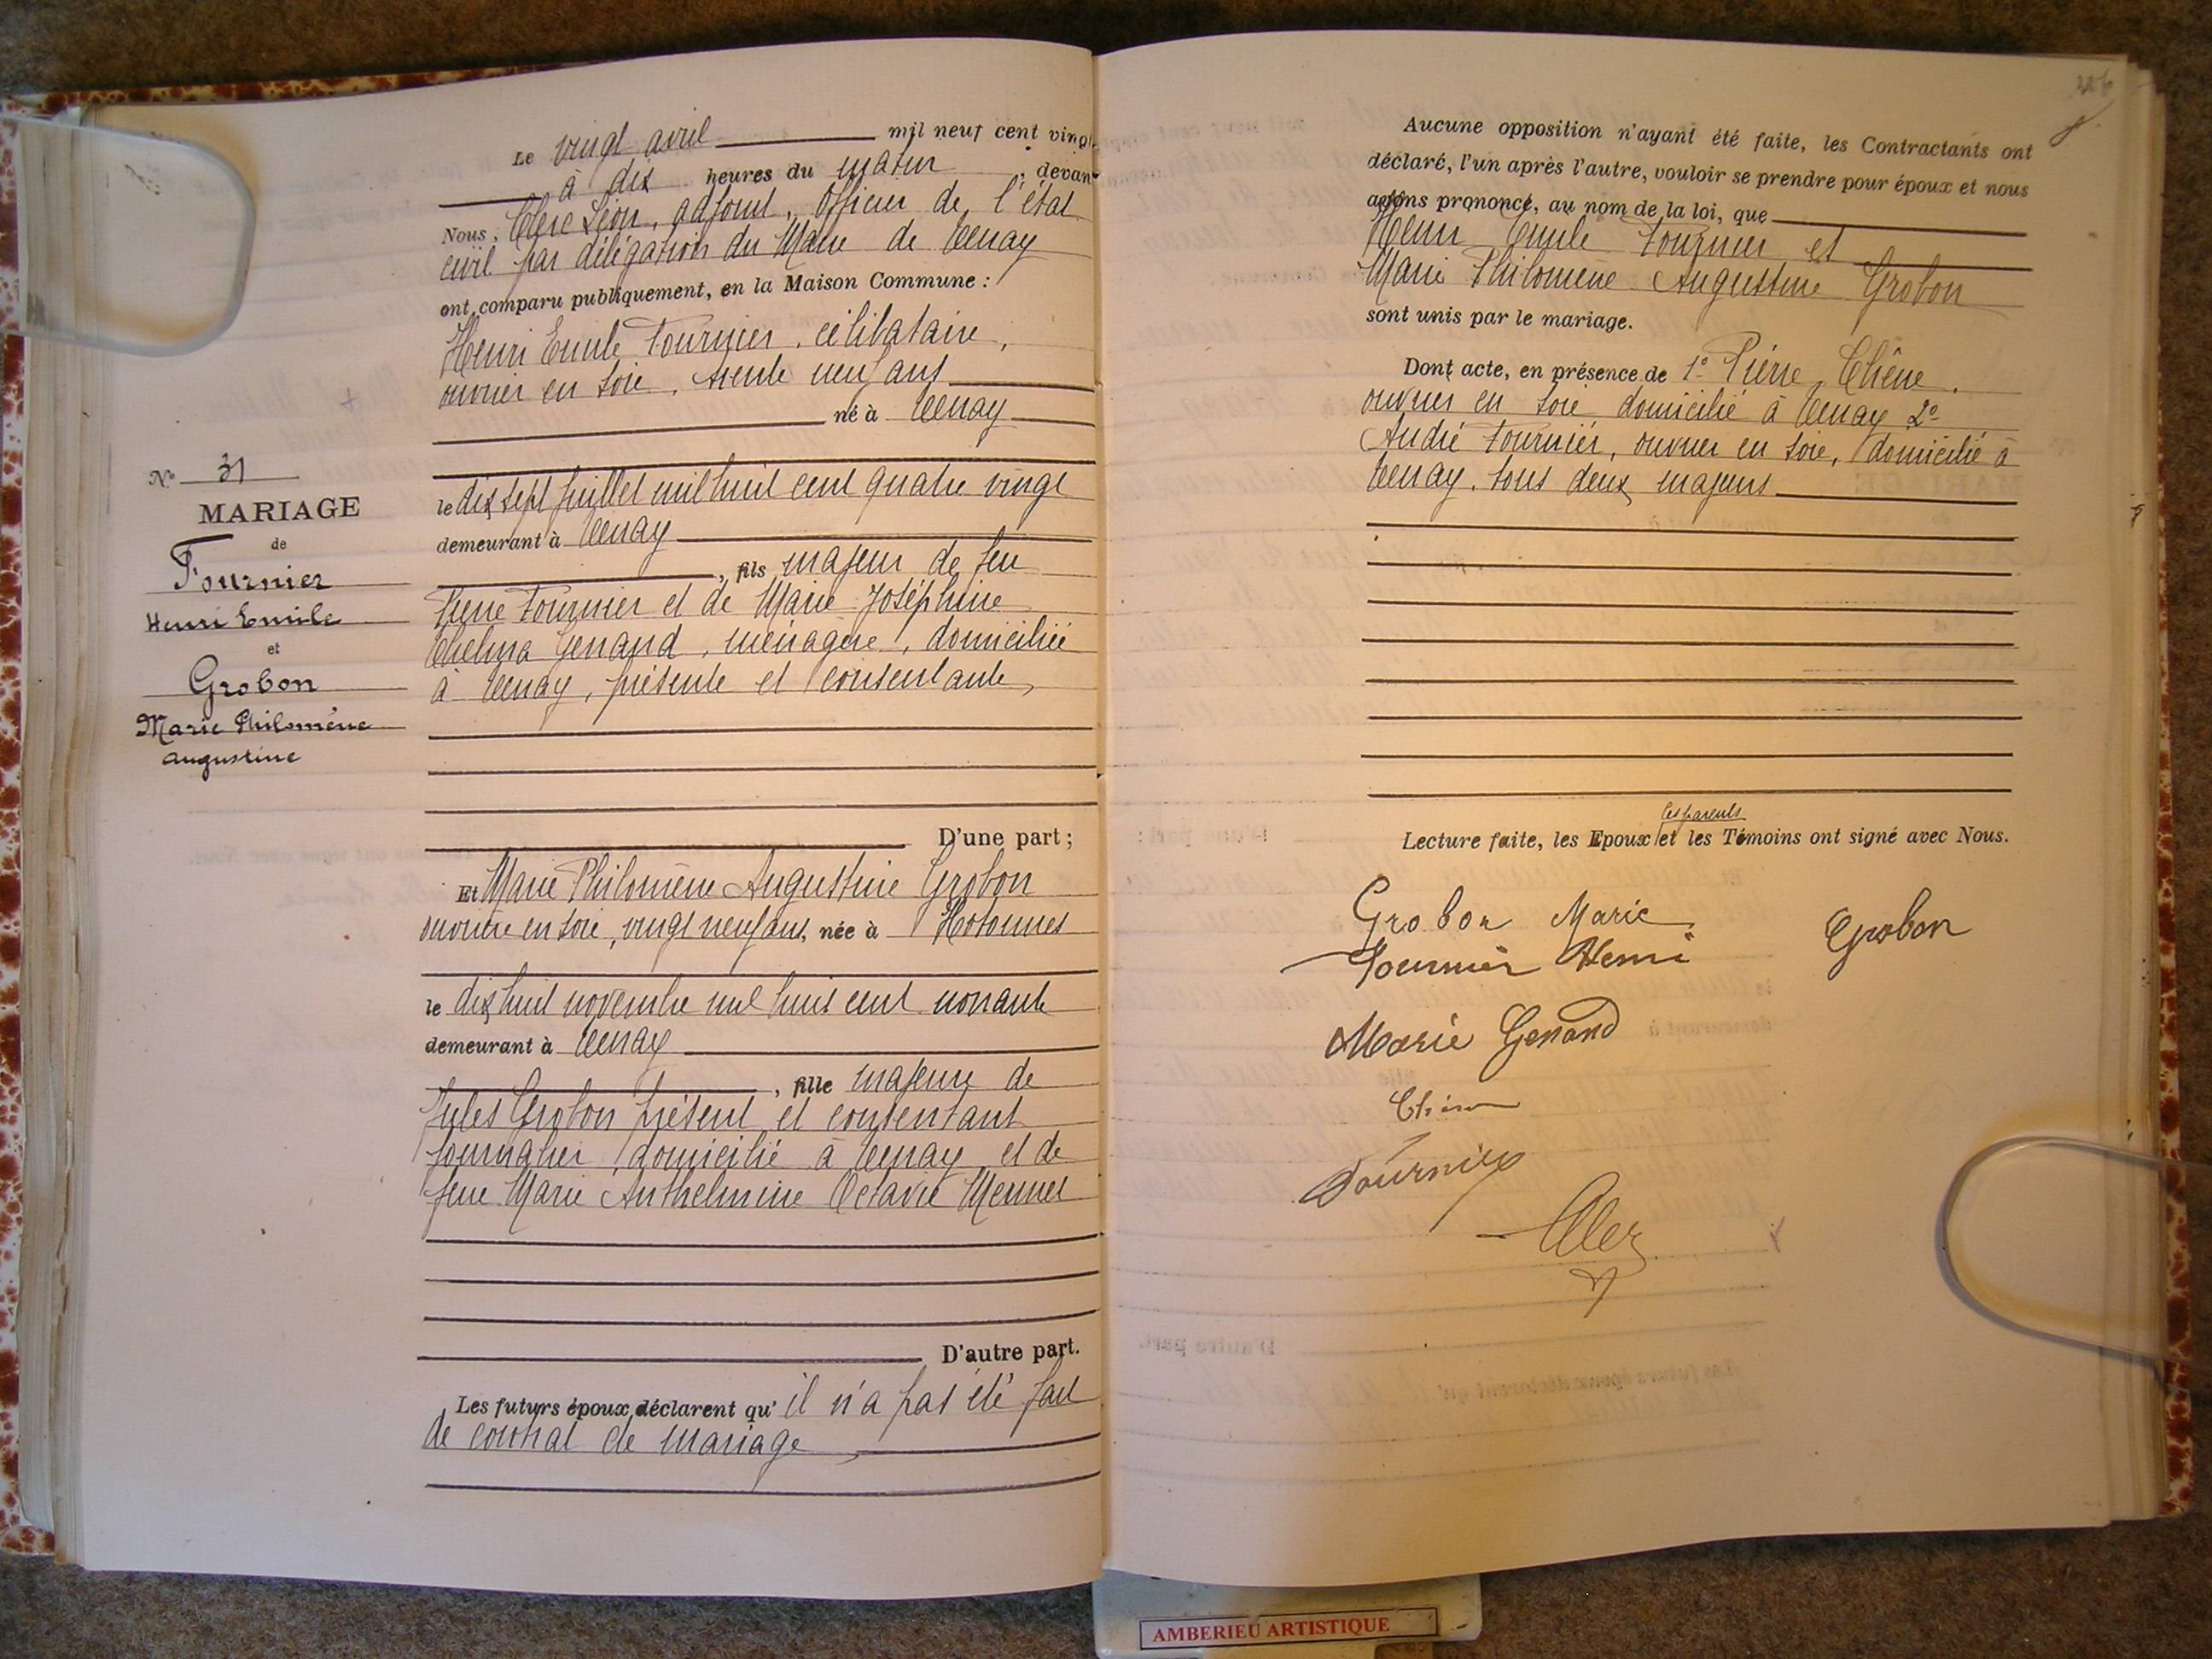 Le vingt avril mil neuf cent vingt
à dix heures du matin, devant
Nous, Clerc Léon, adjoint, Officier de l'état
civil par délégation du Maire de Tenay
ont comparu publiquement, en la Maison Commune :
Henri Emile Fournier, célibataire,
ouvrier en soie, trente neuf ans
né à Tenay
le dix sept juillet mil huit cent quatre vingt
demeurant à Tenay
, fils majeur de feu
Pierre Fournier et de Marie Joséphine
Thelma Genand, ménagère, domiciliée
à Tenay, présente et consentante,
D'une part ;
Et Marie Philomène Augustine Grobon
ouvrière en soie, vingt neuf ans, née à Hotonnes
le dix huit novembre mil huit cent nonante
demeurant à Tenay
, fille majeure de
Jules Grobon présent et consentant
journalier, domicilié à Tenay et de
feue Marie Anthelmine Octavie Mermet
D'autre part.
Les futurs époux déclarent qu' il n'a pas été fait
de contrat de mariage
N° 31
MARIAGE
de
Fournier
Henri Emile
et
Grobon
Marie Philomène
Augustine
226
Aucune opposition n'ayant été faite, les Contractants ont
déclaré, l'un après l'autre, vouloir se prendre pour époux et nous
avons prononcé, au nom de la loi, que
Henri Emile Fournier et
Marie Philomène Augustine Grobon
sont unis par le mariage.
Dont acte, en présence de 1° Pierre Chêne,
ouvrier en soie domicilié à Tenay 2°
André Fournier, ouvrier en soie, domicilié à
Tenay, tous deux majeurs
les parents
Lecture faite, les Epoux et les Témoins ont signé avec Nous.
Grobon Marie
Grobon
Fournier Henri
Marie Genand
Chêne
Fournier
Clerc
AMBERIEU ARTISTIQUE